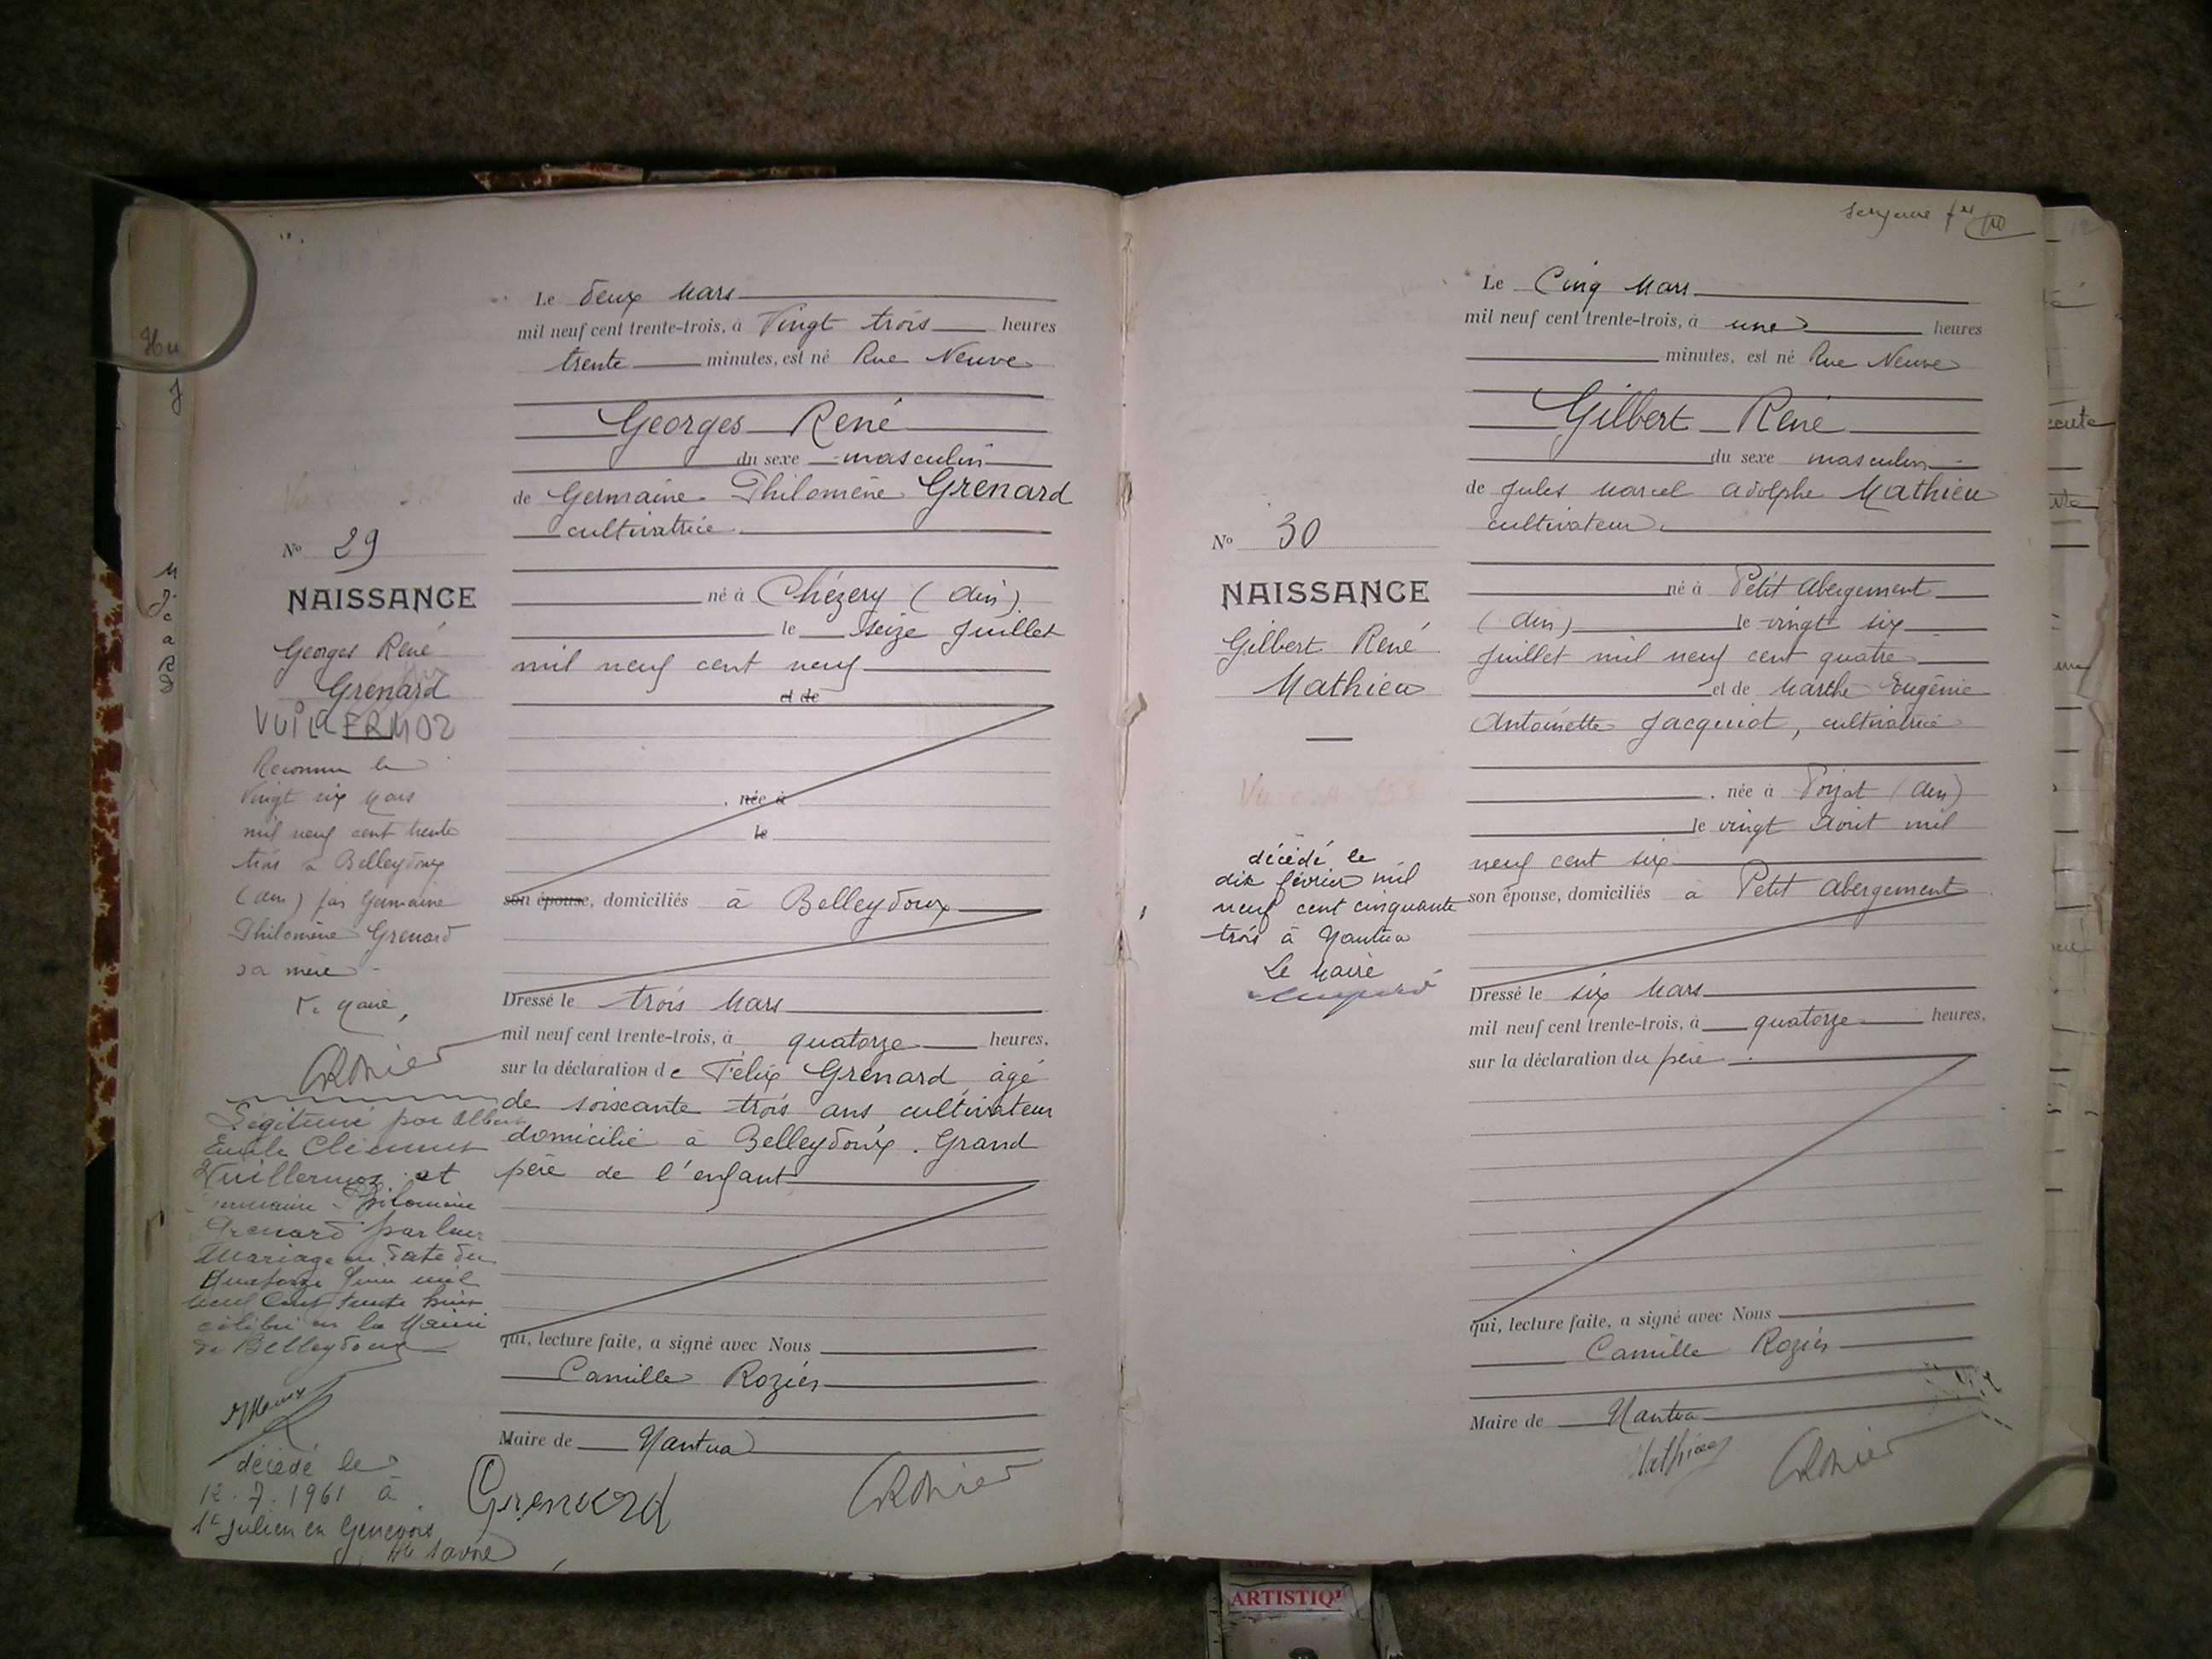 Le deux Mars
mil neuf cent trente-trois, à Vingt trois heures
trente minutes, est né Rue Neuve
Georges René
du sexe masculin
de Germaine Philomène Grenard
cultivatrice
né à Chézery (Ain)
le seize Juillet
mil neuf cent neuf
et de
, née à
le
son épouse, domiciliés à Belleydoux
Dressé le trois Mars
mil neuf cent trente-trois, à quatorze heures,
sur la déclaration de Félix Grenard âgé
de soixante trois ans cultivateur
domicilié à Belleydoux. Grand
père de l'enfant
qui, lecture faite, a signé avec Nous
Camille Roziés
Maire de Nantua
Grenard
No 29
NAISSANCE
Georges René
Grenard
VUILLERMOZ
Reconnu le
Vingt six Mars
mil neuf cent trente
trois à Belleydoux
(Ain) par Germaine
Philomène Grenard
sa mère
Le Maire,
Légitimé par Albert
Emile Clément
Vuillermoz et
Germaine Philomène
Grenard par leur
Mariage en date du
Quatorze Juin mil
neuf Cent trente huit
célébré en la Mairie
de Belleydoux
décédé le
12.7.1961 à
St Julien en Genevois
Hte Savoie
Le Cinq Mars
mil neuf cent trente-trois, à une heures
minutes, est né Rue Neuve
Gilbert René
du sexe masculin
de Jules Marcel Adolphe Mathieu
cultivateur
né à Petit Abergement
(Ain) le vingt six
Juillet mil neuf cent quatre
et de Marthe Eugènie
Antoinette Jacquiot, cultivatrice
, née à Poizat (Ain)
le vingt Août mil
neuf cent six
son épouse, domiciliés à Petit Abergement
Dressé le six Mars
mil neuf cent trente-trois, à quatorze heures,
sur la déclaration du père.
qui, lecture faite, a signé avec Nous
Camille Roziés
Maire de Nantua
Mathieu
No 30
NAISSANCE
Gilbert René
Mathieu
décédé le
dix février mil
neuf cent cinquante
trois à Nantua
Le Maire
ARTISTIQ